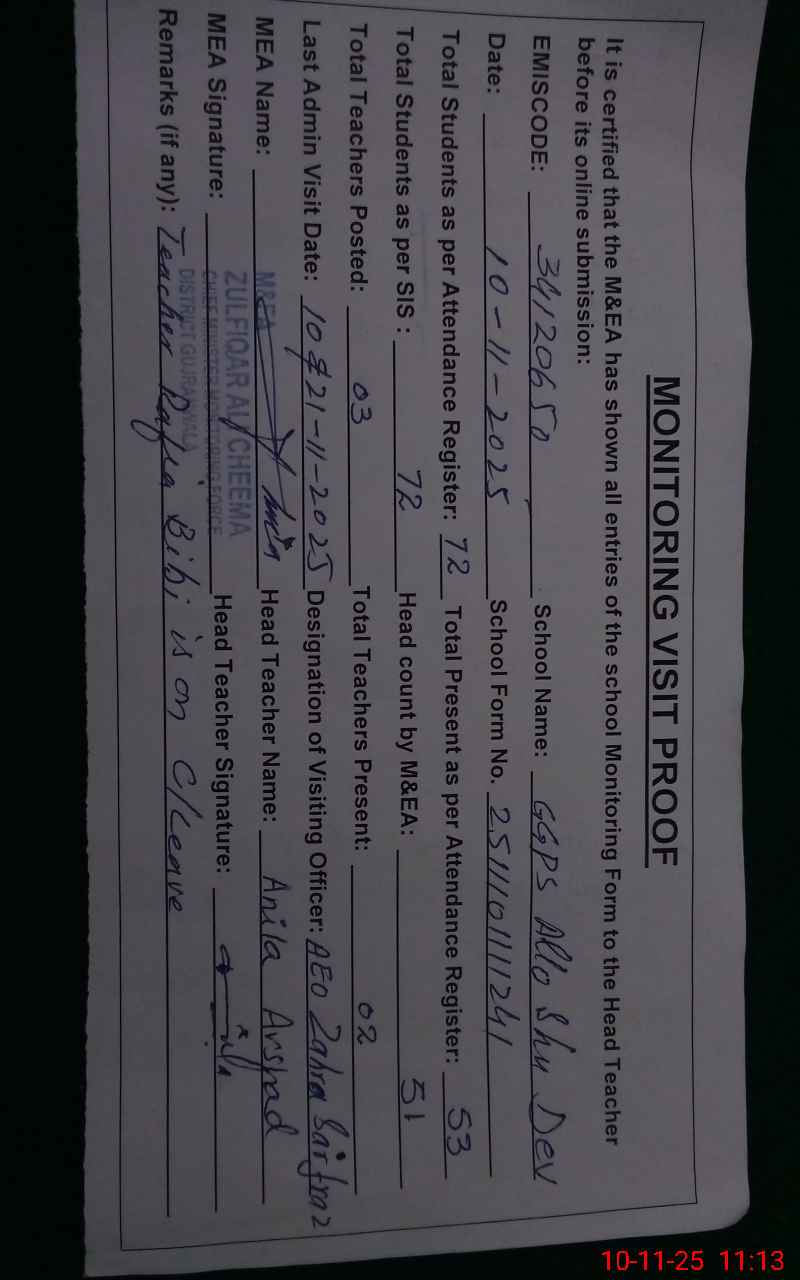 MONITORING VISIT PROOF
It is certified that the M&EA has shown all entries of the school Monitoring Form to the Head Teacher
before its online submission:
EMISCODE: 34120650 School Name: GGPS Allo Shu Dev
Date: 10-11-2025 School Form No. 2511101111241
Total Students as per Attendance Register: 72 Total Present as per Attendance Register: 53
Total Students as per SIS : 72 Head count by M&EA: 51
Total Teachers Posted: 03 Total Teachers Present: 02
Last Admin Visit Date: 21-11-2025 Designation of Visiting Officer: AEO Zahra Sarfraz
MEA Name: Head Teacher Name: Anila Arshad
M&EA
ZULFIQAR ALI CHEEMA
CHIEF MINISTER MONITORING FORCE
DISTRICT GUJRANWALA
MEA Signature: Head Teacher Signature:
Remarks (if any): Teacher Rafia Bibi is on C/Leave
10-11-25 11:13